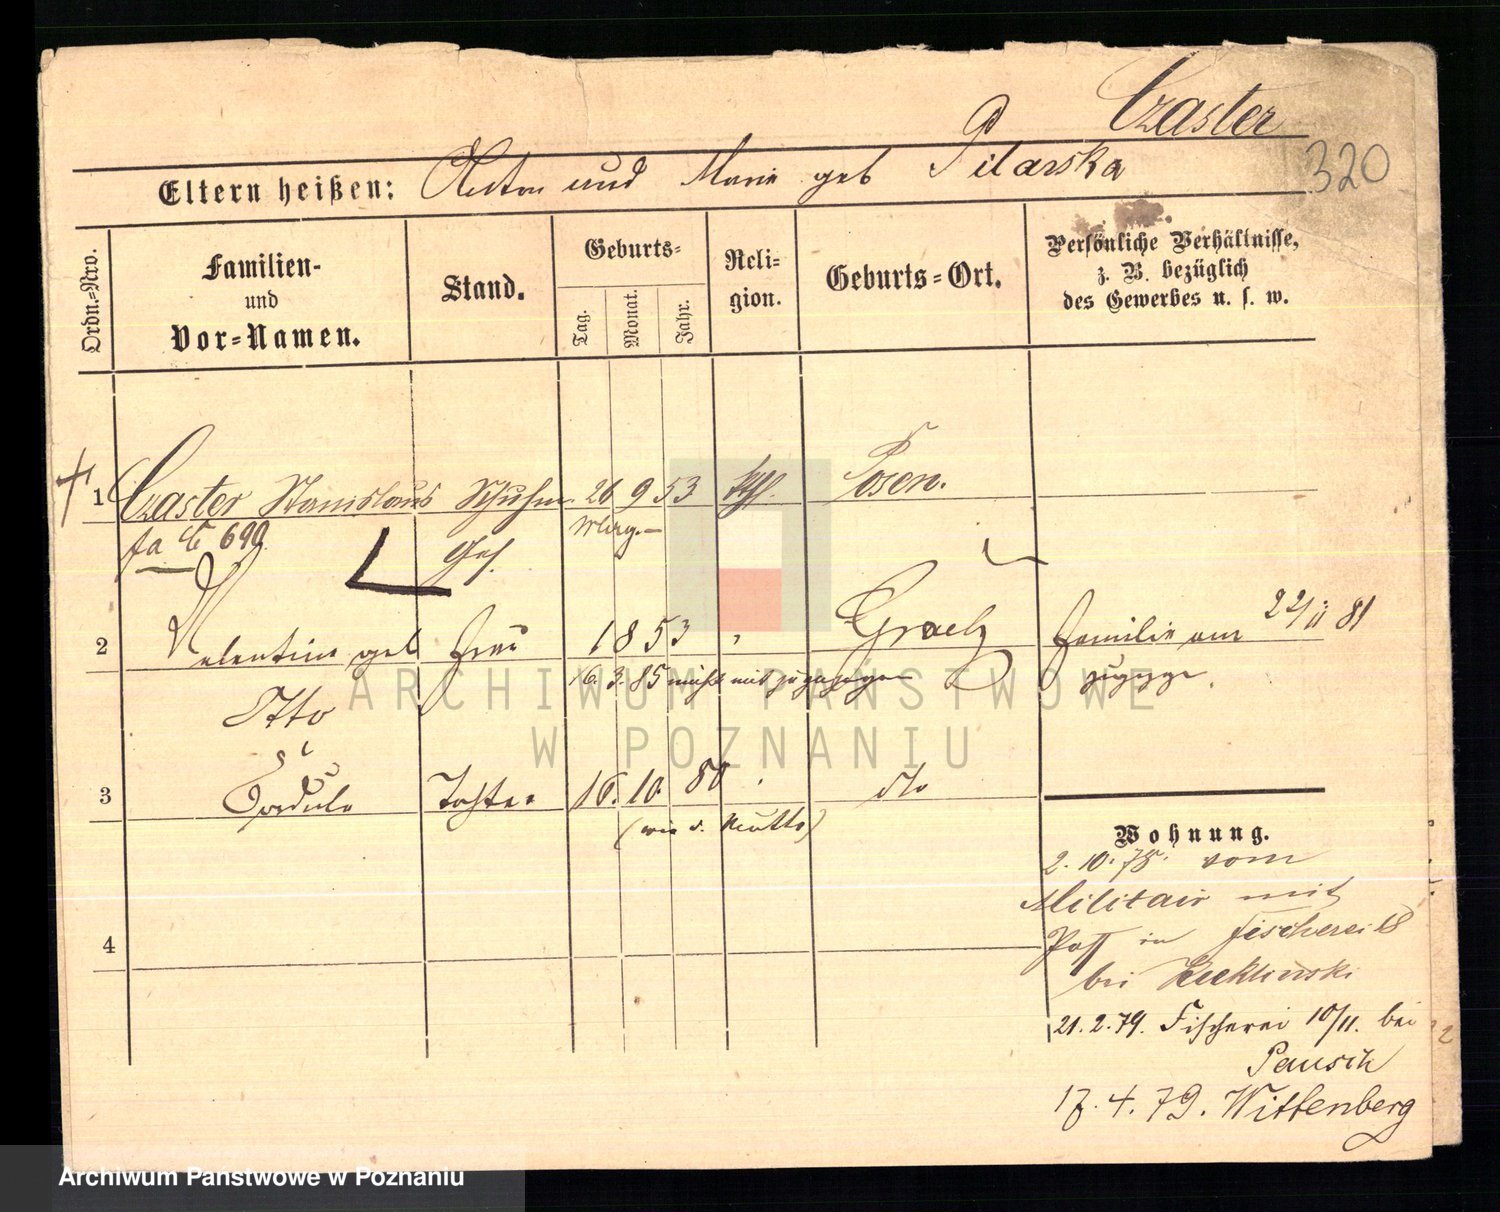 Czaster
320
Eltern heißen: Anton und Marie geb Pilarska
Ordn.-Nro.
Familien-
und
Vor-Namen.
Stand.
Geburts-
Tag.
Monat.
Jahr.
Reli-
gion.
Geburts-Ort.
Persönliche Verhältnisse,
z. B. bezüglich
des Gewerbes u. s. w.
1 Czaster Stanislaus Schuhm. 26 9 53 kth. Posen.
fa C 699
Ges.
2 Valentine geb Frau 1853 Graetz Familie am 22/11 81
Otto
16. 3. 85 nicht mit zugezogen
zugezgn.
3 Cordula Tochter 16. 10. 80 dto
(wie d. Mutter)
Wohnung.
2. 10. 78. vom
Militair mit
Paß in Fischerei 18
bei
4
21. 2. 79. Fischerei 10/11. bei
Pausch
17. 4. 79. Wittenberg
ARCHIWUM PAŃSTWOWE
W POZNANIU
Archiwum Państwowe w Poznaniu